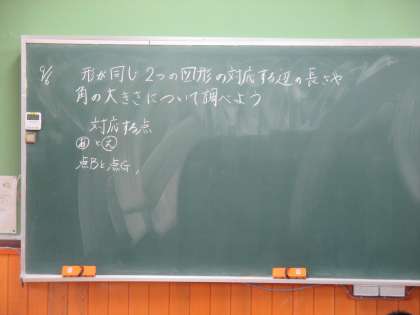 9/6 形が同じ2つの図形の対応する辺の長さや
角の大きさについて調べよう
対応する点
あと
点Bと点G,